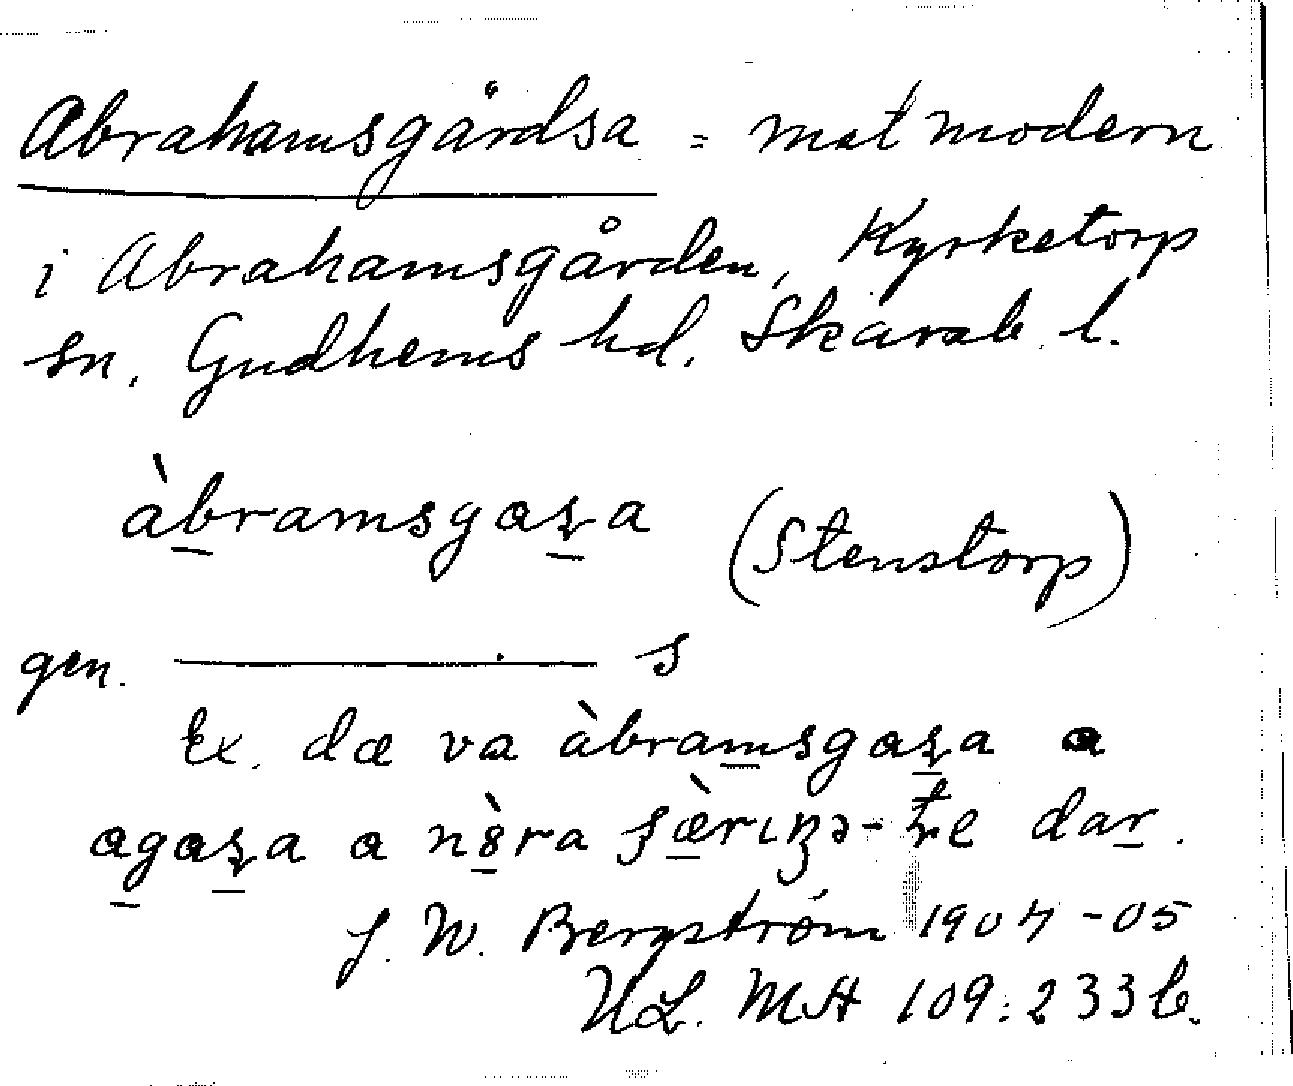 Abrahamsgårdsa = matmodern
i Abrahamsgården, Kyrketorp
sn. Gudhems hd. Skarab. l.
àbramsgaʂa (Stenstorp)
gen. ——— s
Ex. dæ va àbramsgaʂa a
agaʂa a dar.
J. W. Bergström 1904-05
ULMA 109:233 b.